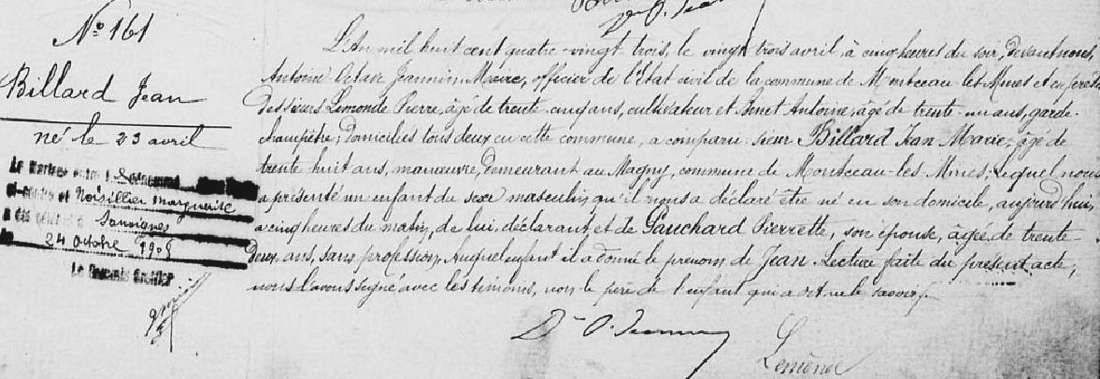 Nº 161
Billard Jean
né le 23 avril
Le Mariage entre
ci-contre et Noisillier Marguerite
a été
Sanvignes
le 24 Octobre 1908
Le Greffier
L'An mil huit cent quatre-vingt trois, le vingt trois avril à cinq heures du soir, devant nous,
Antoine Jeannin Maire, officier de l'Etat civil de la commune de Montceau-les-Mines et en présence
des sieurs Lemonde Pierre, âgé de trente-cinq ans, cultivateur et Antoine, âgé de trente-un ans, garde-
champêtre, domiciliés tous deux en cette commune, a comparu sieur Billard Jean Marie, âgé de
trente huit ans, manœuvre, demeurant au Magny, commune de Montceau-les-Mines; lequel nous
a présenté un enfant du sexe masculin qu'il nous a déclaré être né en son domicile, aujourd'hui,
à cinq heures du matin, de lui, déclarant et de Gauchard Pierrette, son épouse, âgée de trente-
deux ans, sans profession, Auquel enfant il a donné le prénom de Jean. Lecture faite du présent acte,
nous l'avons signé avec les témoins, non le père de l'enfant qui a dit ne le savoir.
Dr O. Jeannin
Lemonde